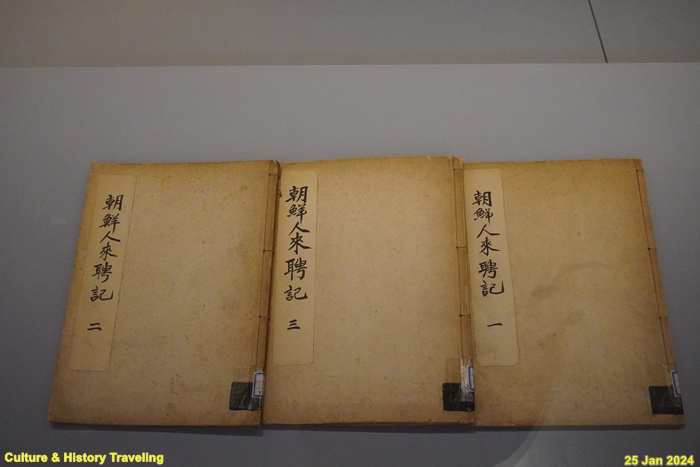 朝鮮人來聘記 二
朝鮮人來聘記 三
朝鮮人來聘記 一
Culture & History Traveling
25 Jan 2024